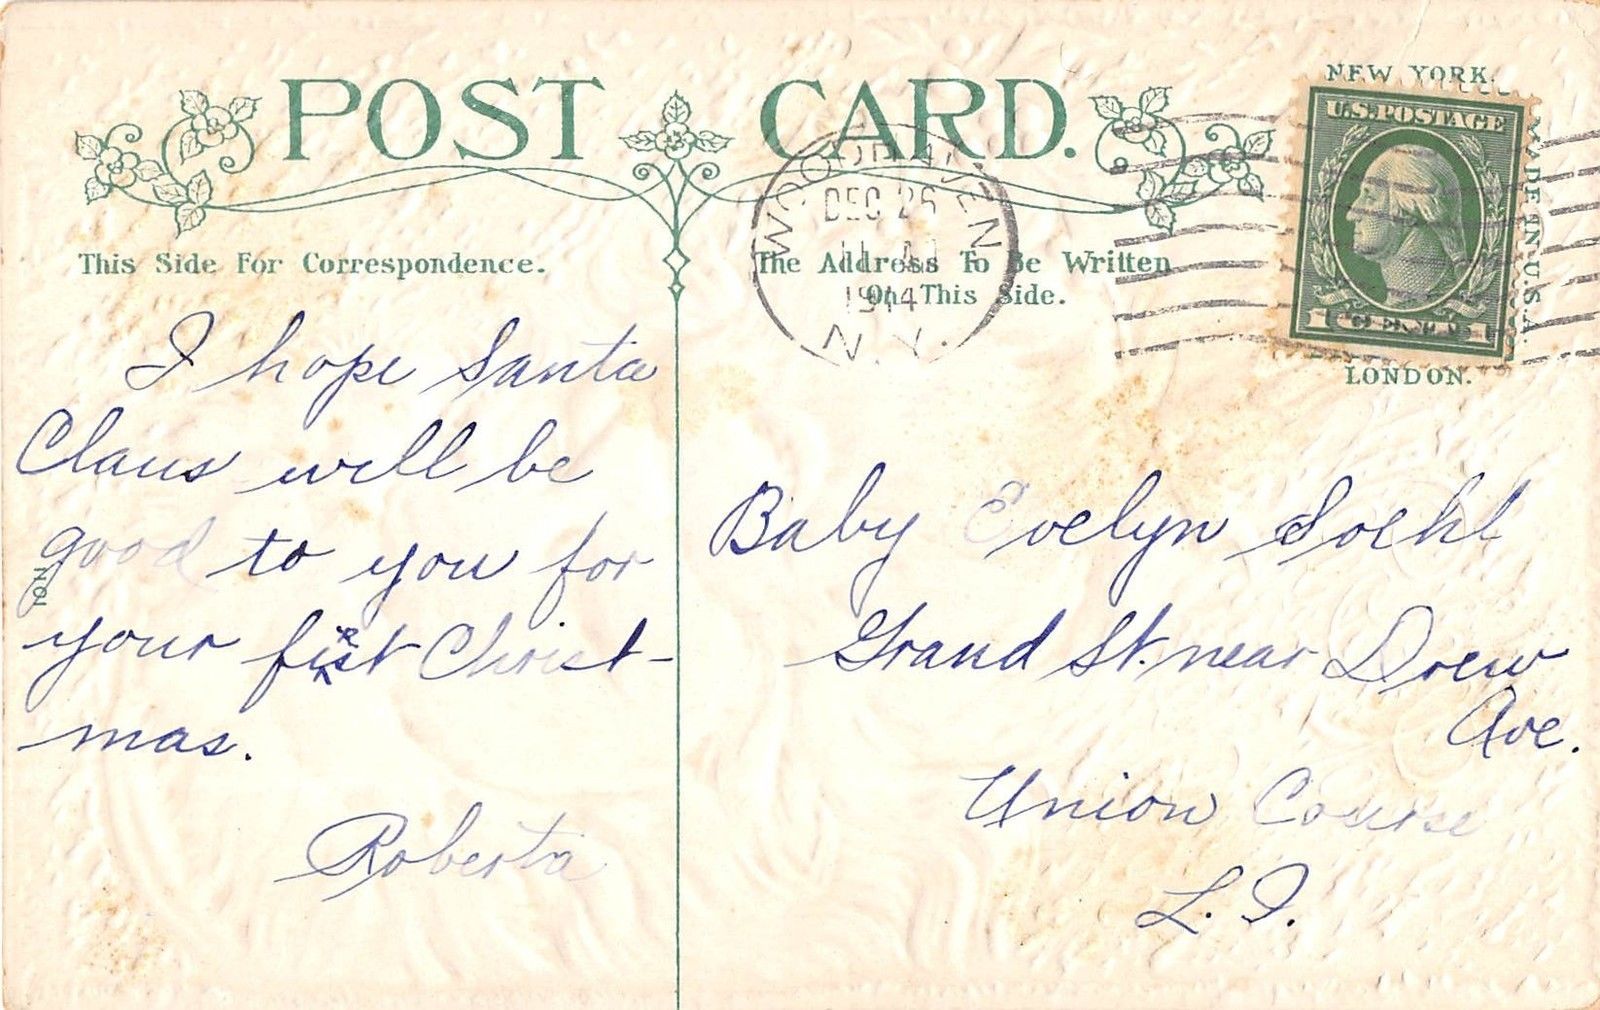 POST CARD.
NEW YORK.
U.S. POSTAGE
MADE IN U.S.A.
LONDON.
WOODHAVEN
DEC 25
11 A
1914
N.Y.
This Side For Correspondence.
The Address To Be Written
On This Side.
I hope Santa
Claus will be
good to you for
your first Christ-
mas.
Roberta
Baby Evelyn Soehl
Grand St. near Drew
Ave.
Union Course
L. I.